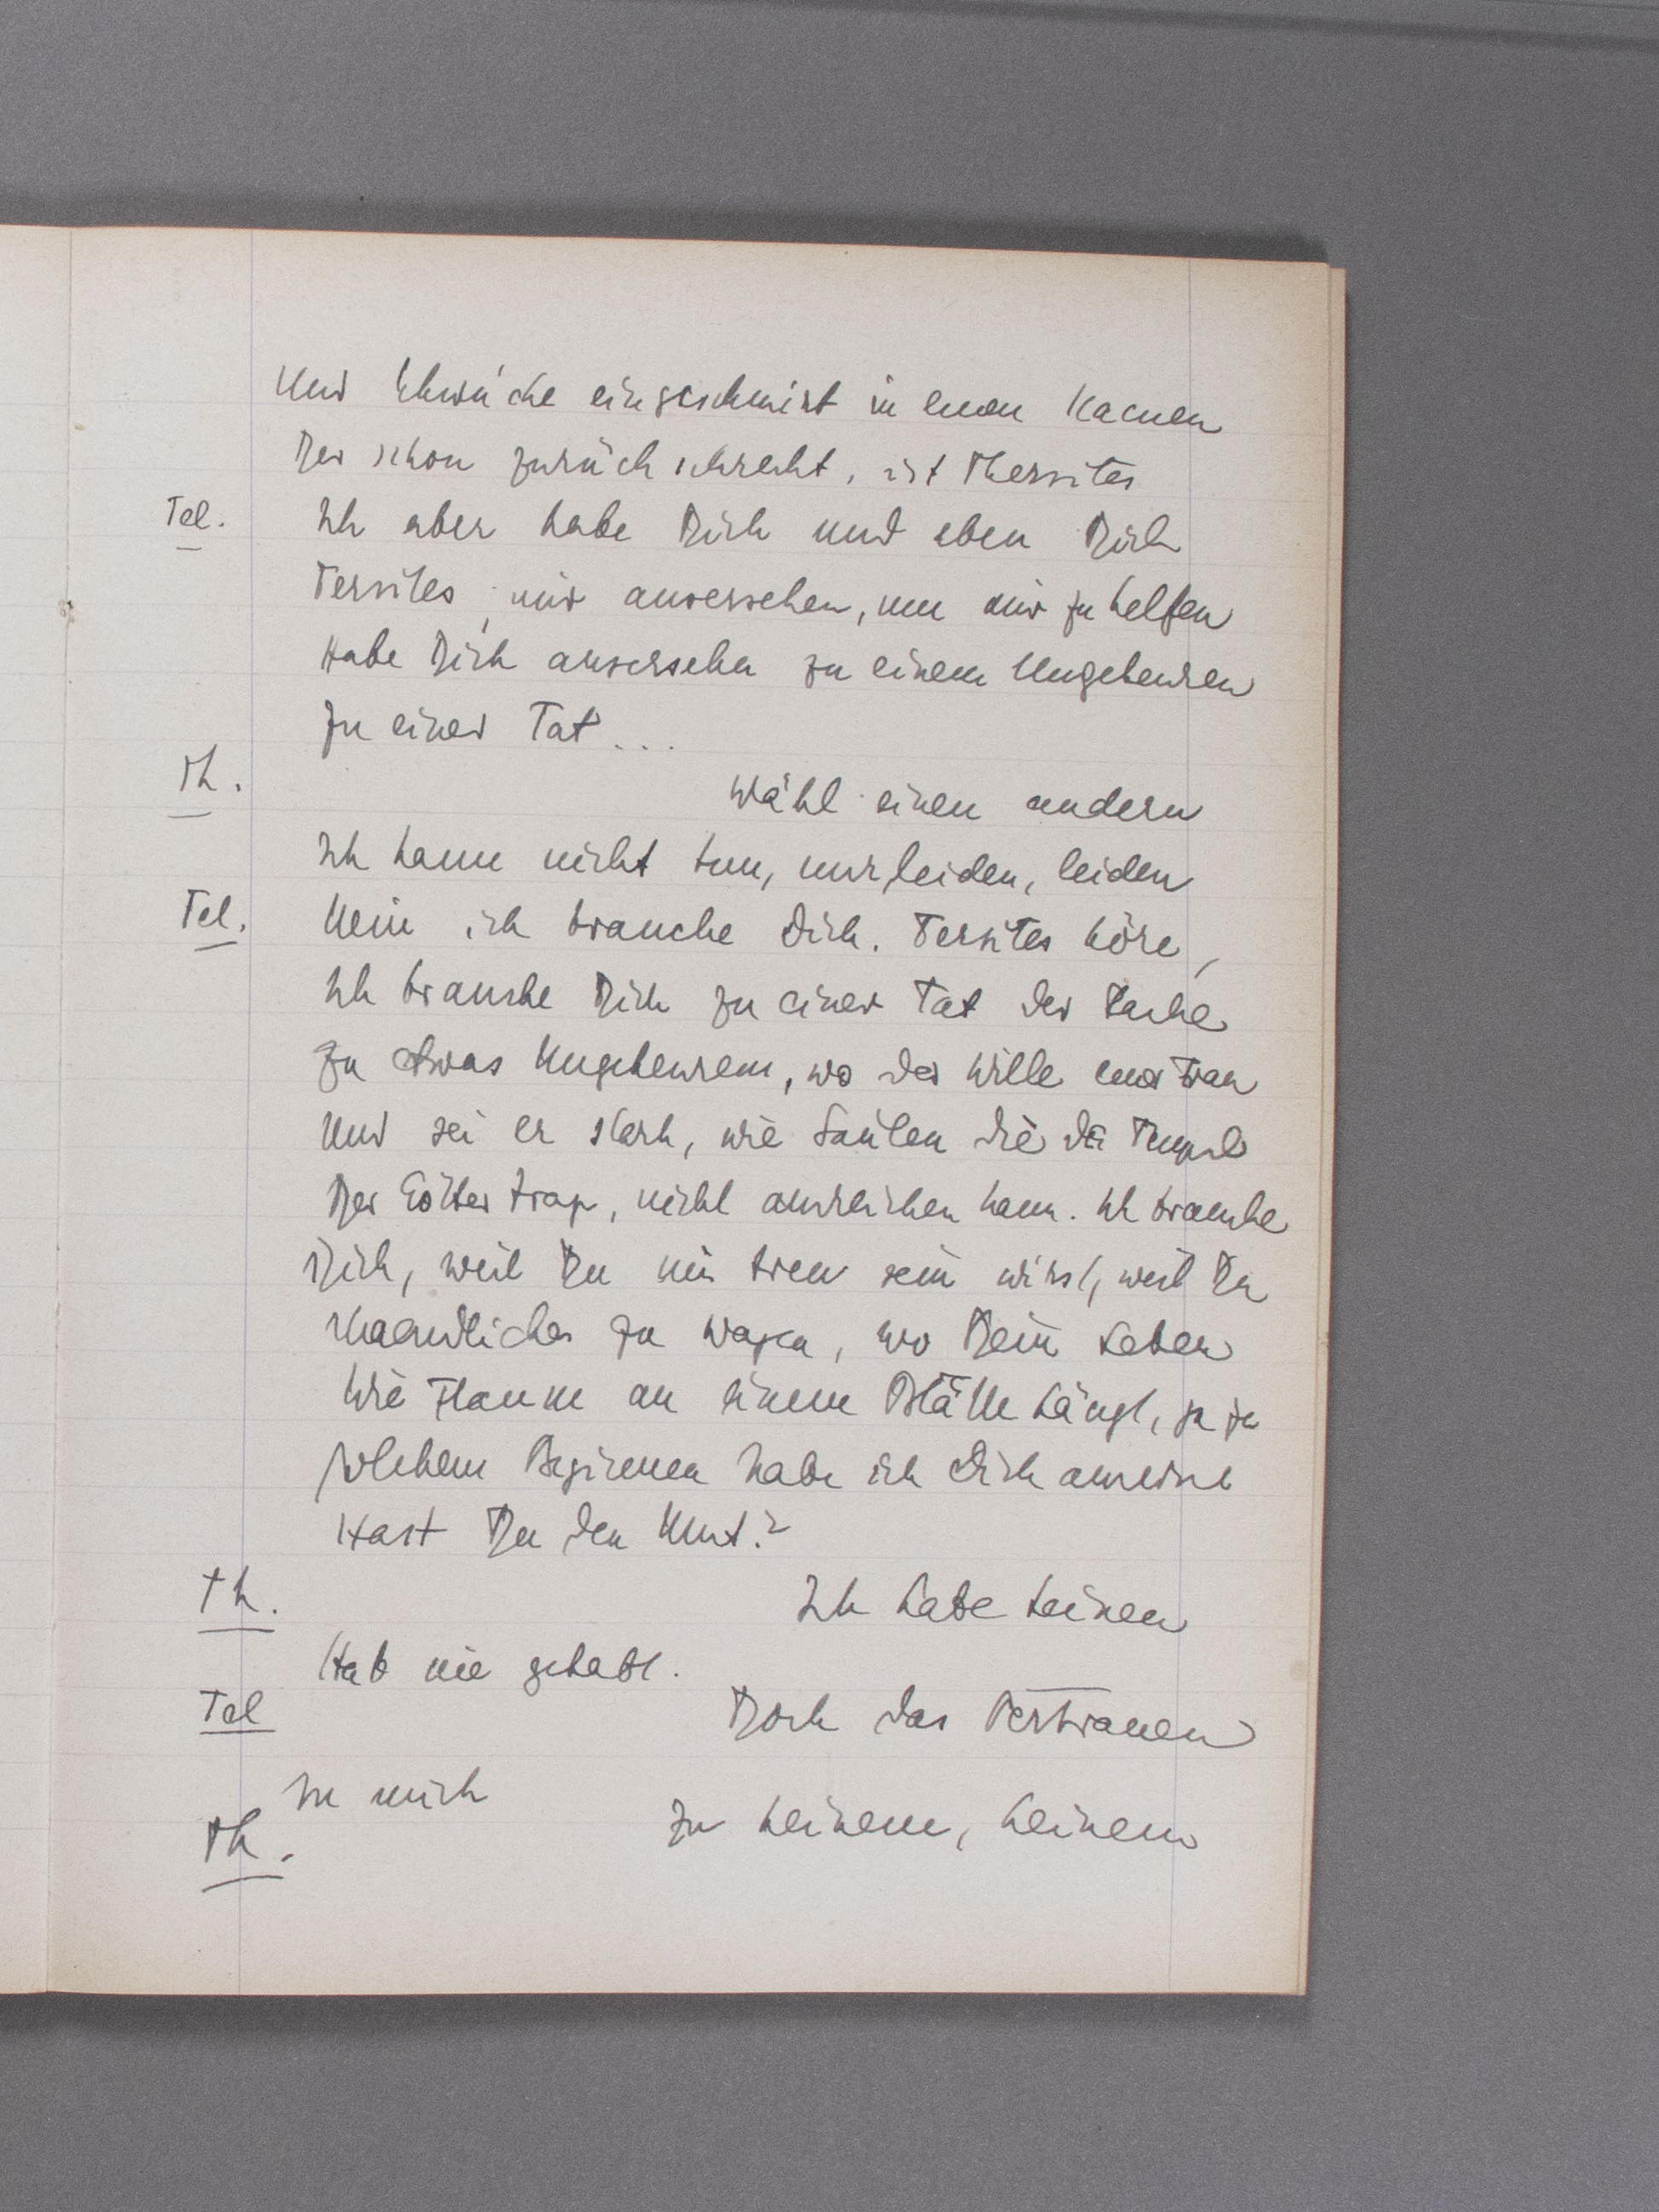 Und Schwäche eingeschnürt in einen Namen
Der schon zurückschreckt, ist Thersites
Tel. Ich aber habe Dich und eben Dich
Tersites, mir ausersehen, um mir zu helfen
Habe Dich ausersehen zu einem Ungeheuren
Zu einer Tat...
Th. Wähl einen andern
Ich kann nicht tun, nur leiden, leiden
Tel. Nein ich brauche Dich. Tersites höre,
Ich brauche Dich zu einer Tat der Rache
Zu etwas Ungeheurem, wo der Wille einer Frau
Und sei er stark, wie Säulen die die Tempel
Der Götter trag, nicht ausreichen kann. Ich brauche
Dich, weil Du mir treu sein wirst, weil Du
Unendliches zu wagen, wo Dein Leben
Wie Flaum an einem Blatte hängt, ja zu
solchem Beginnen habe ich Dich
Hast Du den Mut?
Th. Ich habe keinen
Hab nie gehabt.
Tel Doch das Vertrauen
In mich
Th. Zu keinem, keinem